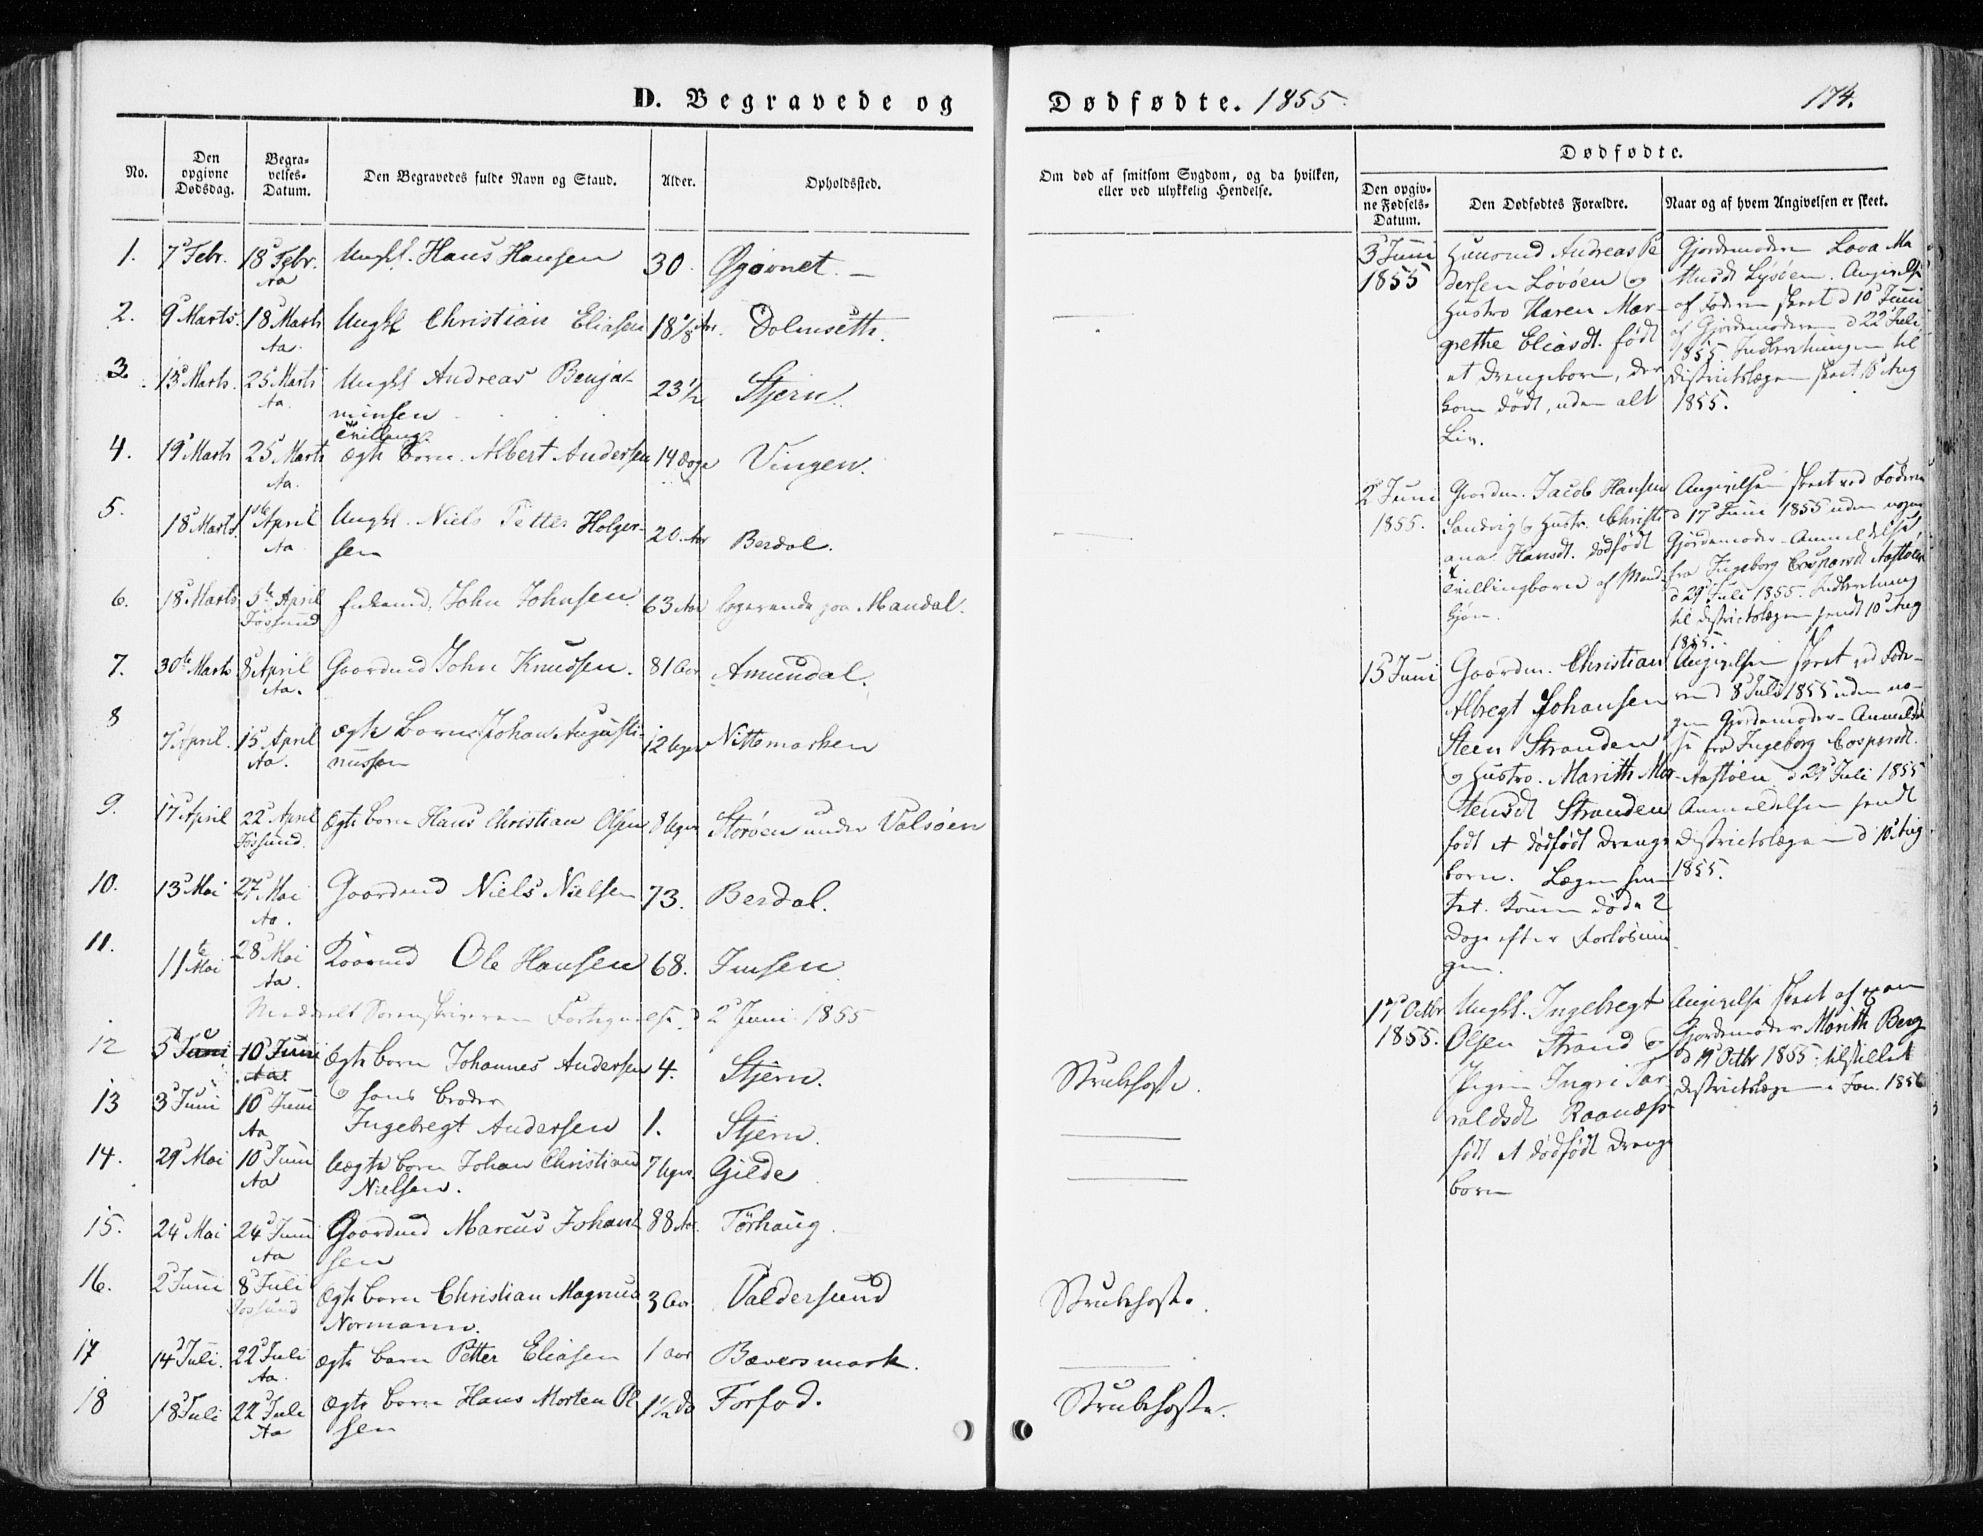 D. Begravede og
Dødfødte. 1855.
174.
No.
Den opgivne Dødsdag.
Begravelses-Datum.
Den Begravedes fulde Navn og Stand.
Alder.
Opholdssted.
Om død af smitsom Sygdom, og da hvilken, eller ved ulykkelig Hendelse.
Dødfødte.
Den opgivne Fødsels-Datum.
Den Dødfødtes Forældre.
Naar og af hvem Angivelsen er skeet.
1. 7d Febr. 18d Febr. Aa Ungkl. Hans Hansen 30.
2. 9d Marts. 18d Marts Aa. Ungkl Christian Eliasen 18 1/8 Aar. Dolmseth.
3 13d Marts. 25d Marts Aa. Ungkl Andreas Benja-
minsen 23 1/2 Stjern.
Tvilling
4. 19d Marts 25d Marts Aa. Ægte Barn. Albert Andersen 14 Dage Vingen.
5. 18d Marts. 1ste April Aa Ungkl. Niels Petter Holger-
sen 20 Aar Berdal.
6. 18d Marts 5te April Jøssund John Johnsen. 63 Aar logerende paa Mandal.
7. 30te Marts 8d April Aa. Gaardmd John Knudsen. 81 Aar Amundal.
8 7d April. 15d April Aa. Ægte Barn Johan Augusti-
nussen 12 Uger Nittemarken
9. 17d April 22d April Jøssund. Ægte Barn Hans Christian Olsen 8 Uger Storøen under Valsøen
10. 13d Mai 27d Mai Aa. Gaardmd Niels Nielsen 73. Berdal.
11. 11te Mai 28d Mai Aa. Ole Hansen 68.
Meddeelt Sorenskriveren Fortegnelse d 2d Juni 1855
12 5d Juni 10d Juni Aa. Ægte Barn Johannes Andersen 4. Stjern. Strubehoste.
13 3d Juni 10d Juni Aa og hans Broder
Ingebregt Andersen 1. Stjern.
14. 29d Mai 10d Juni Aa Uægte Barn Johan Christian
Nielsen. 7 Uger. Gilde
15. 24d Mai 24d Juni Aa Gaardmd Marcus Johan-
sen 88 Aar. Tørhaug.
16. 2d Juni 8d Juli Jøssund Ægte Barn Christian Magnus
Normann. 3 Aar. Valdersund Strubehoste.
17 14d Juli. 22d Juli Aa. Ægte Barn Petter Eliasen 1 Aar Bæversmark.
18 18d Juli 22d Juli Aa Ægte Barn Hans Morten Ol
sen 1 1/2 do Forfod. Strubehoste.
3d Juni
1855
Huusmd Andreas Pe
dersen Løvøen og
Hustro Karen Mar-
grethe Eliasdt. født
et Drengebarn, der
kom dødt, uden alt
Liv.
Gjordemoderen Lova Ma
thisdt Lysøen. Angivelse
af Faderen skeet d 10d Juni
af Gjordemoderen d 22d Juli
1855. Indberetningen til
Districtslægen skeet 10d Aug
1855.
2d Juni
1855.
Gaardm. Jacob Hansen
Sandvig og Hustr. Christi
ana Hansdt. dødfødt
Tvillingbarn af Mand-
kjøn.
Angivelsen skeet ved Faderen
d 17d Juni 1855 uden nogen
Gjordemoder-Anmeldelse
fra Ingeborg Caspersdt Aastøen
d 29d Juli 1855. Indberetning
til Districtslægen sendt 10d Aug
1855.
15 Juni
Gaardm. Christian
Albregt Johansen
Steen Stranden
og Hustro. Marith Mor-
tensdt Stranden
født et dødfødt Drenge
barn. Lægen hen
tet. Konen døde 2
Dage efter Forløsnin
gen.
Angivelsen skeet ved Fade-
ren d 8d Juli 1855 uden no-
gen Gjordemoder-Anmeldel
se fra Ingeborg Caspersdt.
Aastøen d 29d Juli 1855
Anmeldelsen sendt
Districtslægen d 10d Aug
1855.
17d Octbr
1855.
Ungkl. Ingebregt
Olsen Strand og
Pigen Ingri Har-
raldsdt Raanæss
født et dødfødt Drenge
barn
Angivelse skeet af
Gjordemoder Marith Berg
d 19d Octbr 1855. tilstillet
Districtslægen i Jan. 1856